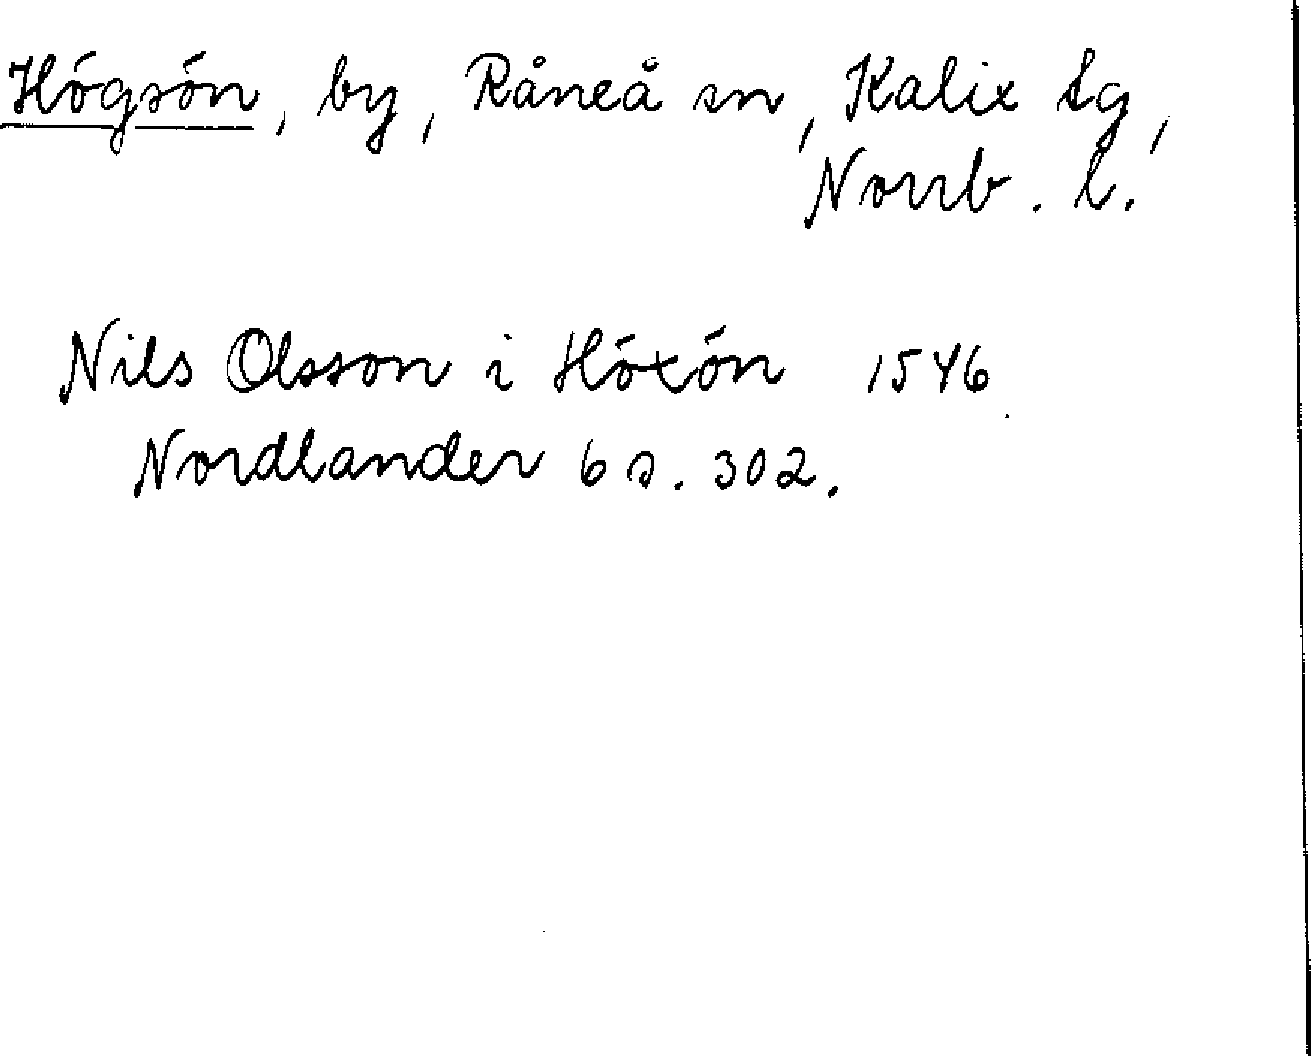 Högsön, by, Råneå sn, Kalix tg,
Norrb. l.
Nils Olsson i Höxön 1546
Nordlander 6 s. 302.